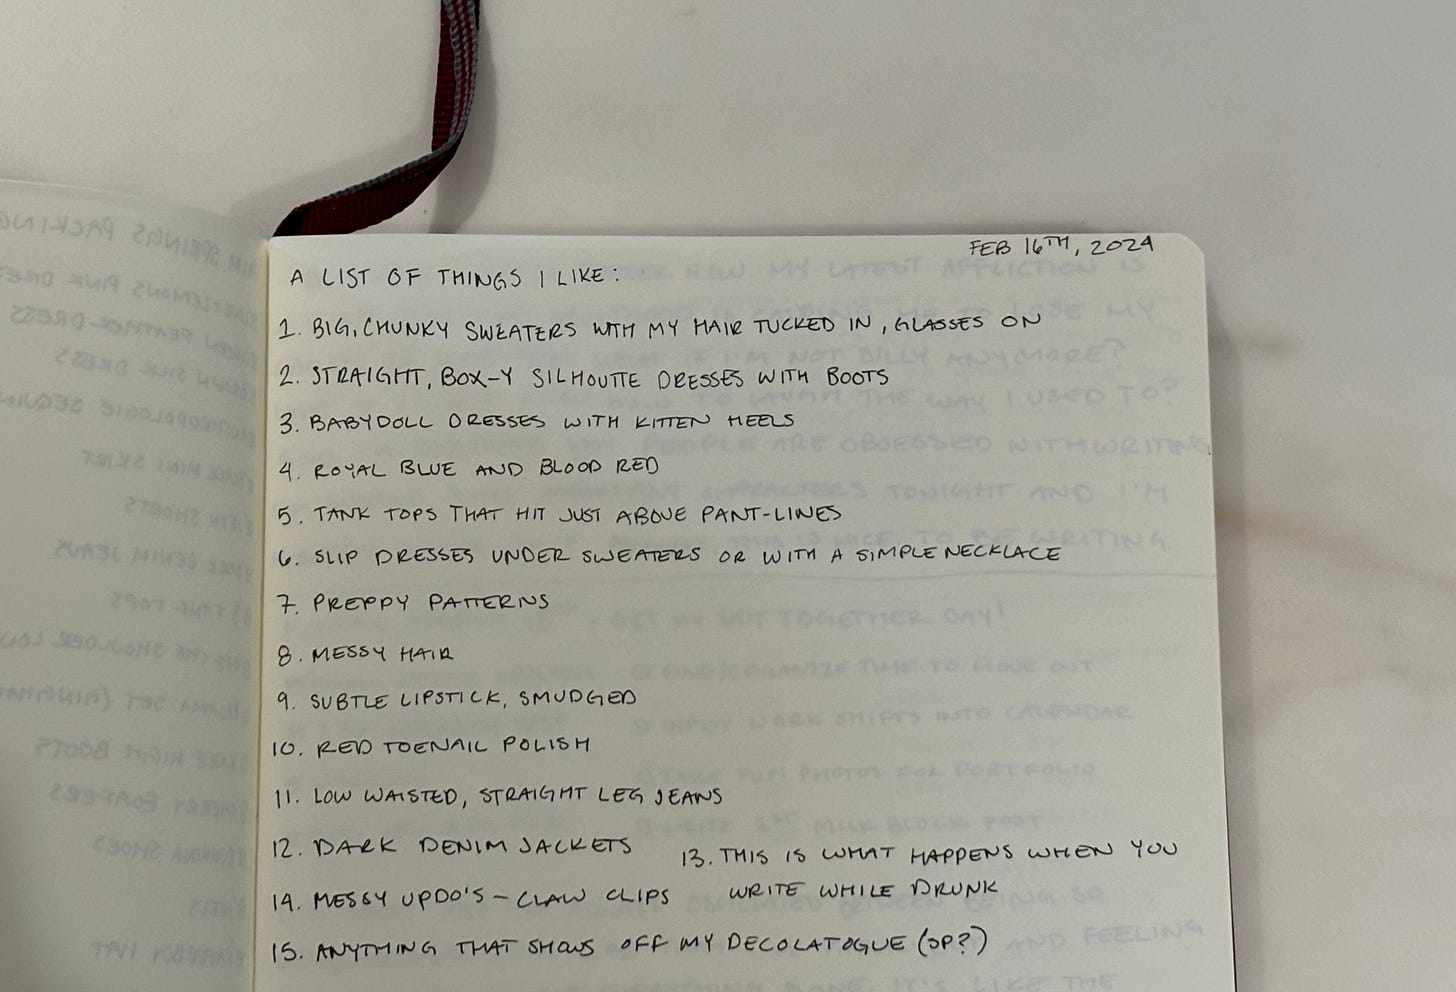 FEB 16TH, 2024
A LIST OF THINGS I LIKE:
1. BIG, CHUNKY SWEATERS WITH MY HAIR TUCKED IN, GLASSES ON
2. STRAIGHT, BOX-Y SILHOUTTE DRESSES WITH BOOTS
3. BABYDOLL DRESSES WITH KITTEN HEELS
4. ROYAL BLUE AND BLOOD RED
5. TANK TOPS THAT HIT JUST ABOVE PANT-LINES
6. SLIP DRESSES UNDER SWEATERS OR WITH A SIMPLE NECKLACE
7. PREPPY PATTERNS
8. MESSY HAIR
9. SUBTLE LIPSTICK, SMUDGED
10. RED TOENAIL POLISH
11. LOW WAISTED, STRAIGHT LEG JEANS
12. DARK DENIM JACKETS
13. THIS IS WHAT HAPPENS WHEN YOU
WRITE WHILE DRUNK
14. MESSY UPDO'S - CLAW CLIPS
15. ANYTHING THAT SHOWS OFF MY DECOLATOGUE (SP?)